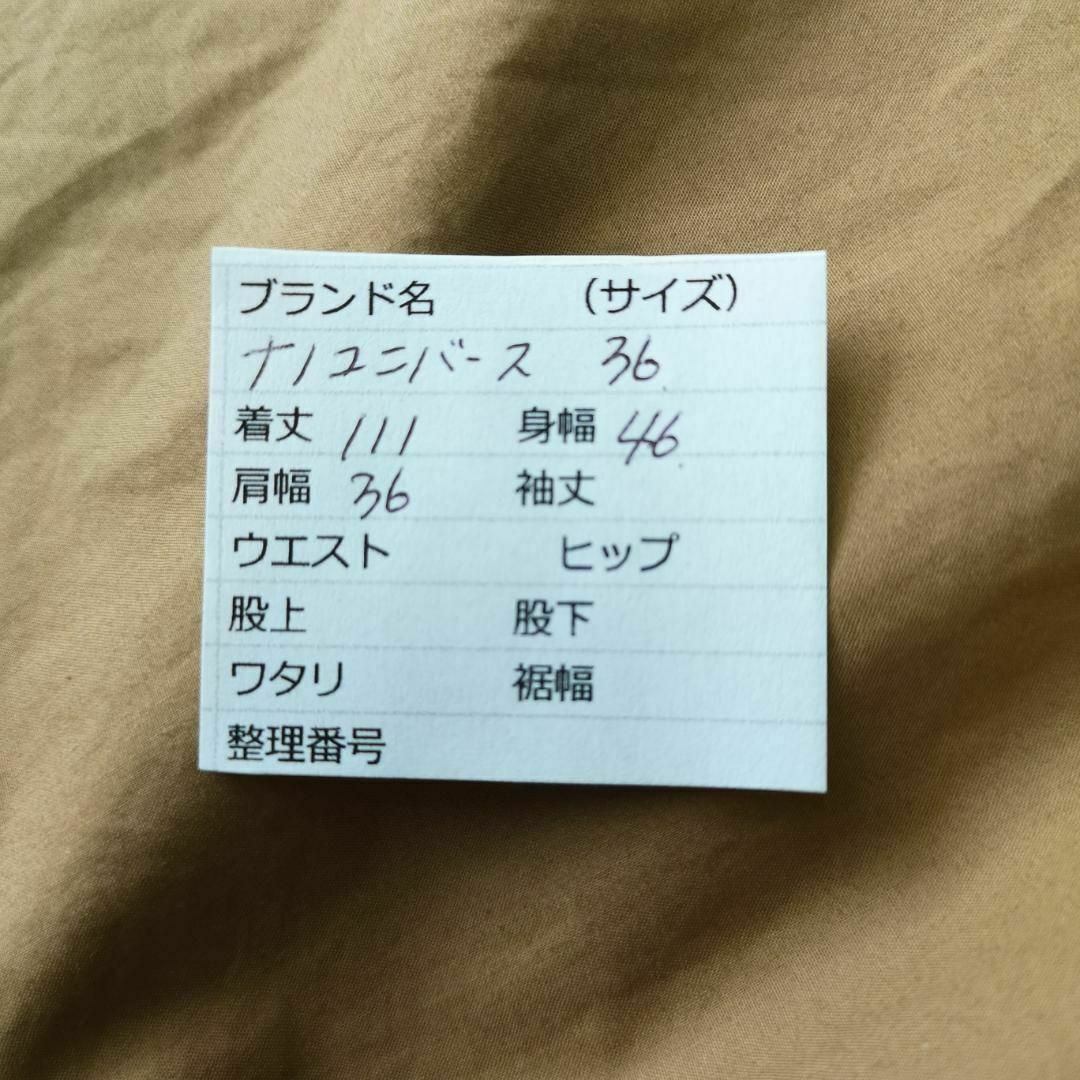 ブランド名 （サイズ）
ナノユニバース 36
着丈 111 身幅 46
肩幅 36 袖丈
ウエスト ヒップ
股上 股下
ワタリ 裾幅
整理番号